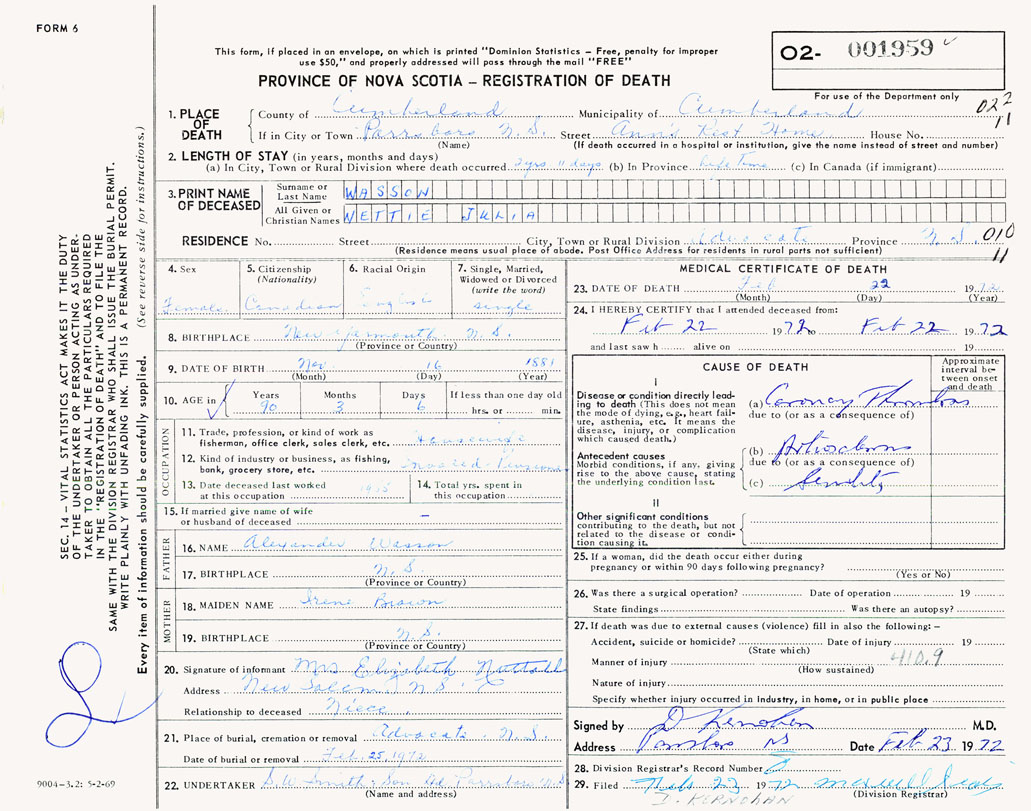 FORM 6
This form, if placed in an envelope, on which is printed "Dominion Statistics – Free, penalty for improper
use $50," and properly addressed will pass through the mail "FREE"
PROVINCE OF NOVA SCOTIA – REGISTRATION OF DEATH
02- 001959
For use of the Department only
022
11
1. PLACE OF DEATH
County of Cumberland Municipality of Cumberland
If in City or Town Parrsboro N.S. Street Anns Rest Home House No.
(Name) (If death occurred in a hospital or institution, give the name instead of street and number)
2. LENGTH OF STAY (in years, months and days)
(a) In City, Town or Rural Division where death occurred 2yrs 11 days (b) In Province Life Time (c) In Canada (if immigrant)
3. PRINT NAME OF DECEASED
Surname or Last Name WASSON
All Given or Christian Names NETTIE JULIA
RESIDENCE No. Street City, Town or Rural Division Advocate Province N.S. 010
11
(Residence means usual place of abode. Post Office Address for residents in rural parts not sufficient)
4. Sex
Female
5. Citizenship
(Nationality)
Canadian
6. Racial Origin
English
7. Single, Married,
Widowed or Divorced
(write the word)
single
8. BIRTHPLACE New Yarmouth N.S.
(Province or Country)
9. DATE OF BIRTH Nov 16 1881
(Month) (Day) (Year)
10. AGE in
Years Months Days If less than one day old
90 3 6 hrs. or min.
OCCUPATION
11. Trade, profession, or kind of work as
fisherman, office clerk, sales clerk, etc. Housewife
12. Kind of industry or business, as fishing,
bank, grocery store, etc.
13. Date deceased last worked
at this occupation
14. Total yrs. spent in
this occupation
15. If married give name of wife
or husband of deceased –
FATHER
16. NAME Alexander Wasson
17. BIRTHPLACE N.S.
(Province or Country)
MOTHER
18. MAIDEN NAME Irene
19. BIRTHPLACE N.S.
(Province or Country)
20. Signature of informant Mrs Elizabeth Nuttall
Address New Salem N.S.
Relationship to deceased Niece
21. Place of burial, cremation or removal Advocate N.S.
Date of burial or removal Feb. 25, 1972
22. UNDERTAKER S.W. Smith & Son Ltd Parrsboro N.S
(Name and address)
MEDICAL CERTIFICATE OF DEATH
23. DATE OF DEATH Feb 22 1972
(Month) (Day) (Year)
24. I HEREBY CERTIFY that I attended deceased from:
Feb 22 1972 to Feb 22 1972
and last saw h alive on 19
CAUSE OF DEATH
Approximate
interval be-
tween onset
and death
I
Disease or condition directly lead-
ing to death (This does not mean
the mode of dying, e.g., heart fail-
ure, asthenia, etc. It means the
disease, injury, or complication
which caused death.)
(a) Coronary Thrombosis
due to (or as a consequence of)
Antecedent causes
Morbid conditions, if any, giving
rise to the above cause, stating
the underlying condition last.
(b)
due to (or as a consequence of)
(c) Senility
II
Other significant conditions
contributing to the death, but not
related to the disease or condi-
tion causing it.
25. If a woman, did the death occur either during
pregnancy or within 90 days following pregnancy?
(Yes or No)
26. Was there a surgical operation? Date of operation 19
State findings Was there an autopsy?
27. If death was due to external causes (violence) fill in also the following: –
Accident, suicide or homicide? Date of injury 19
(State which)
410.9
Manner of injury
(How sustained)
Nature of injury
Specify whether injury occurred in industry, in home, or in public place
Signed by D Kernohan M.D.
Address Parrsboro NS Date Feb 23 1972
28. Division Registrar's Record Number
29. Filed Feb 23 1972
(Division Registrar)
D. KERNOHAN
SEC. 14 – VITAL STATISTICS ACT MAKES IT THE DUTY
OF THE UNDERTAKER OR PERSON ACTING AS UNDER-
TAKER TO OBTAIN ALL THE PARTICULARS REQUIRED
IN THE "REGISTRATION OF DEATH" AND TO FILE THE
SAME WITH THE DIVISION REGISTRAR WHO SHALL ISSUE THE BURIAL PERMIT.
WRITE PLAINLY WITH UNFADING INK. THIS IS A PERMANENT RECORD.
Every item of information should be carefully supplied. (See reverse side for instructions.)
9004–3.2: 5-2-69